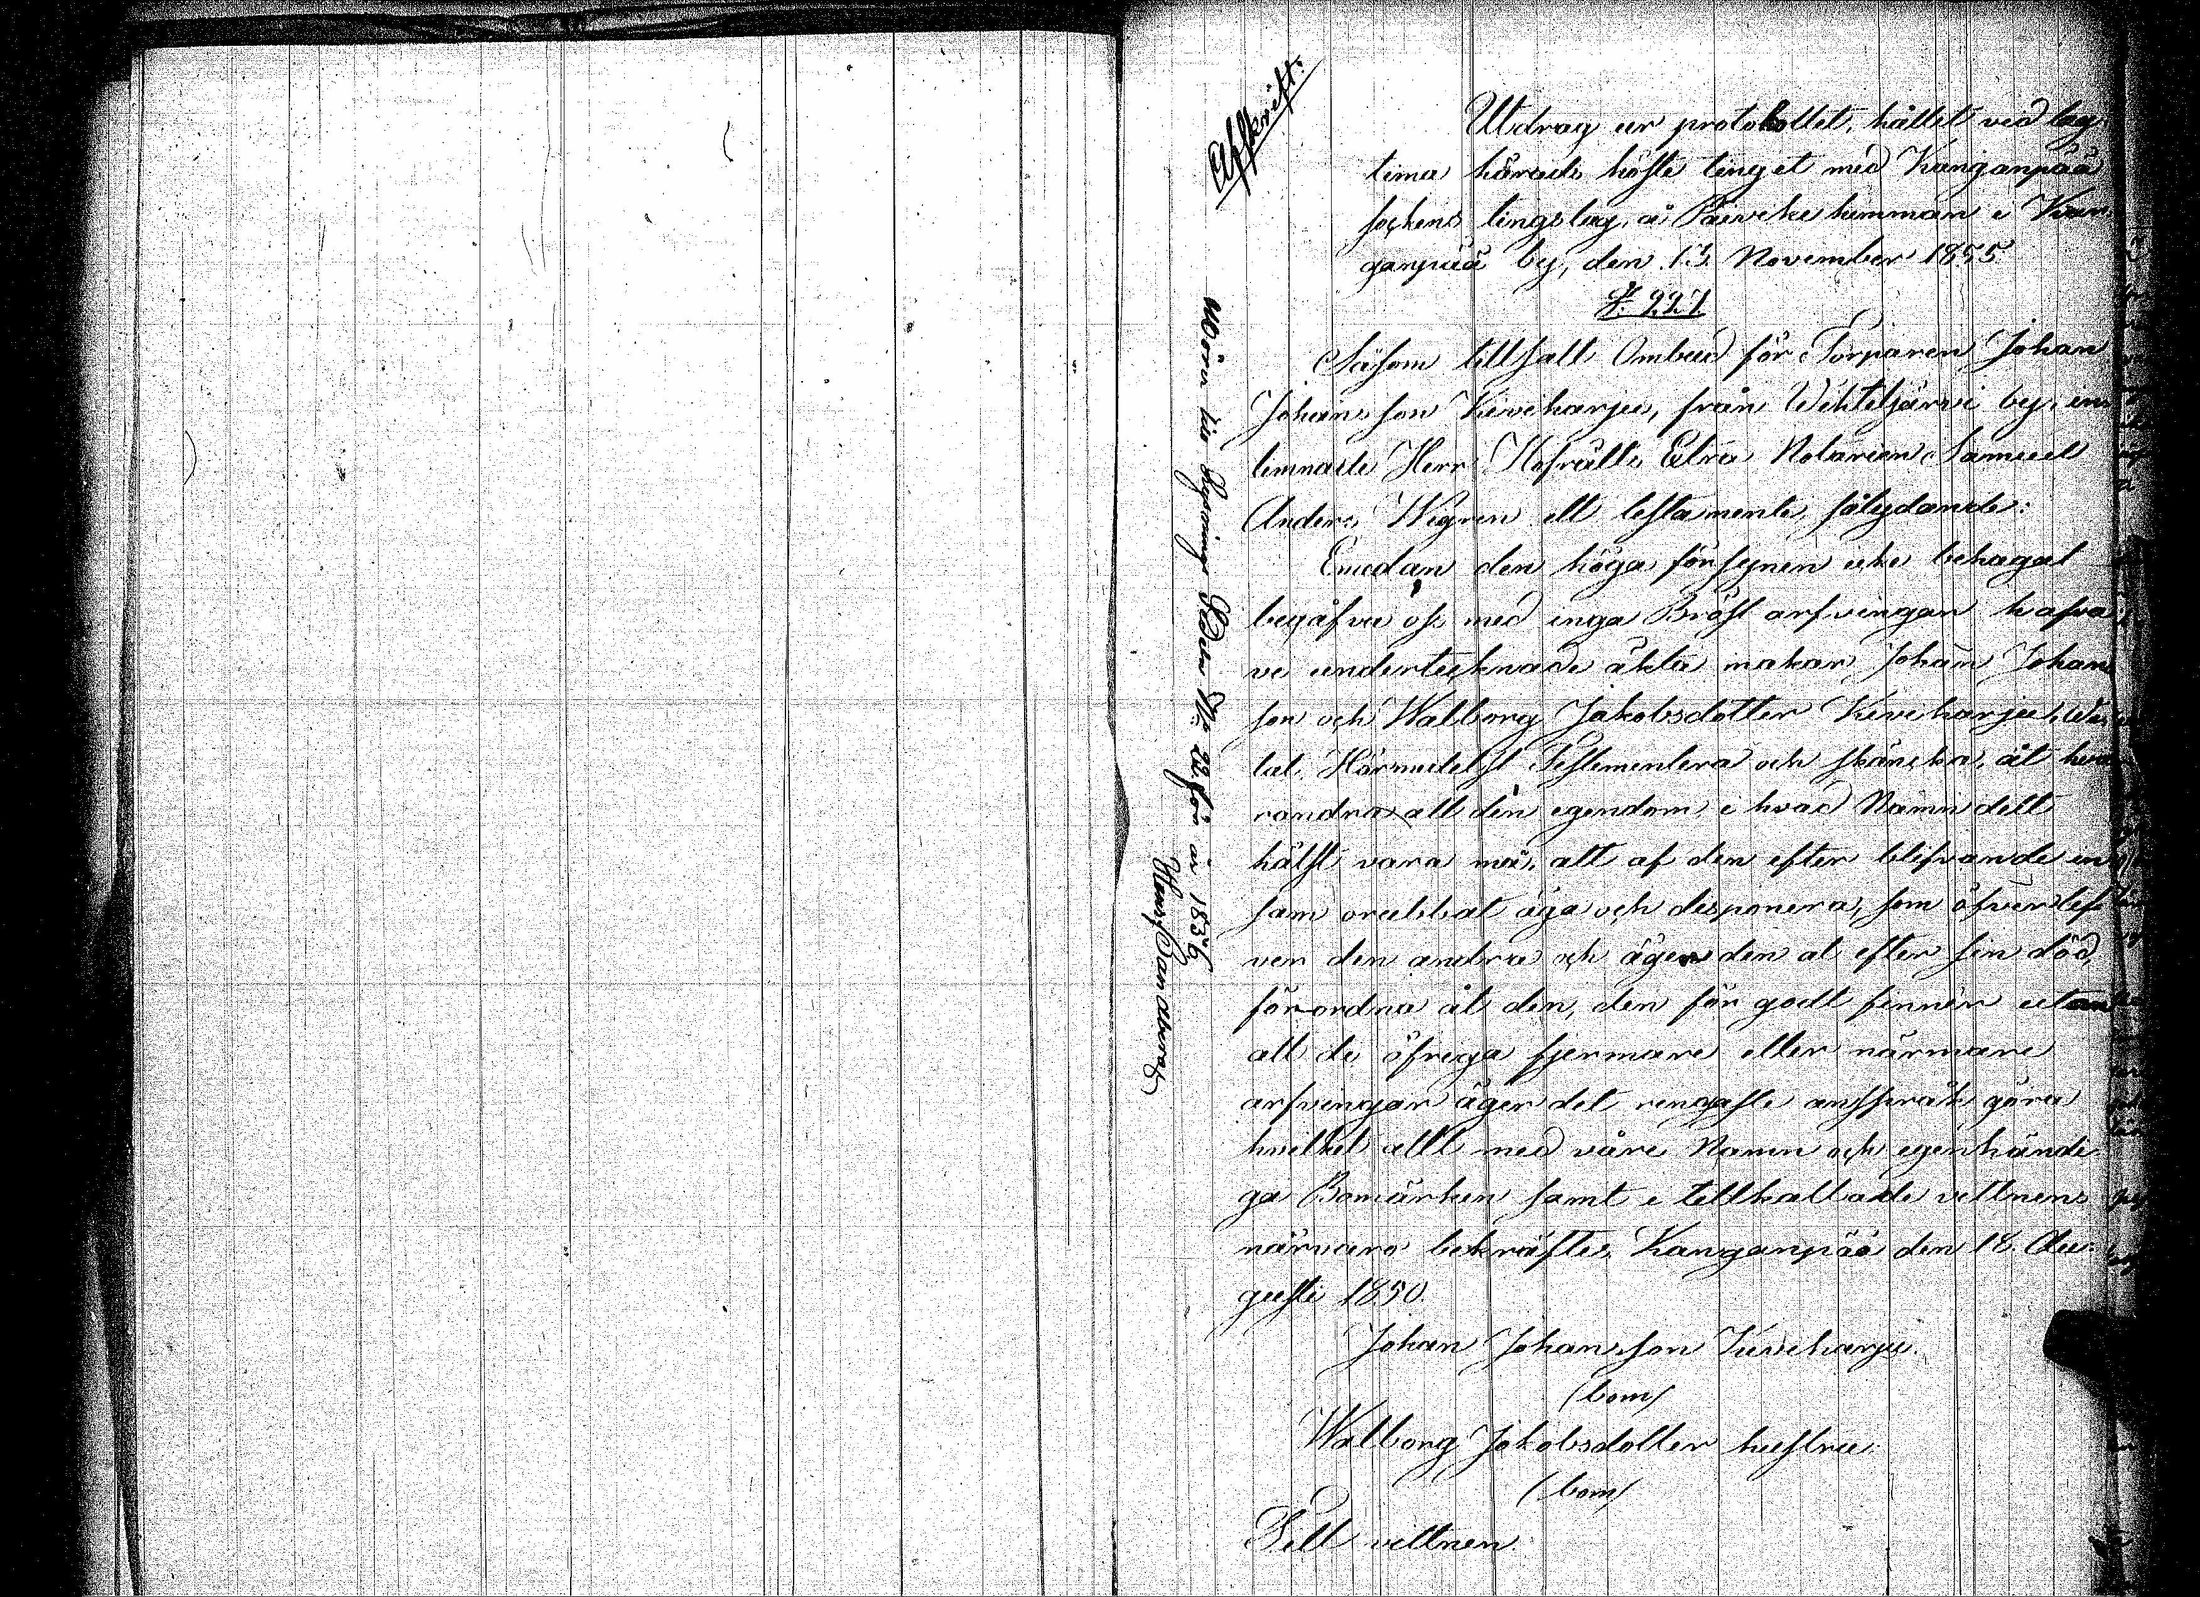 Affskrift:
Utdrag ur protokollet, hållet vid lag
tima härads höste tinget med Kanganpää
sockens tingslag, å Päivike hemman i Kan
ganpää by, den 13 November 1855
§. 227
Såsom tillsatt Ombud för Torparen Johan
Johansson Kiviharju, från Wihteljärvi by, in
lemnade Herr Hofrätts Extra Notarien Samuel
Anders Wigren ett testamente, sålydande:
Emedan den höga försynen icke behagat
begåfva oss med inga Bröst arfvingar hafva
vi undertecknade äkta makar, Johan Johan
son och Walborg Jakobsdotter Kiviharju,
tat. Härmedelst Testementera och skäncka, åt hva
randra all den egendom, i hvad Namn dett
hälst vara må, att af den efter blifvande en
sam orubbat äga och disponera, som öfverlef
ver den andra och äger den at efter sin död,
förordna åt den, den för godt finner utan
att de öfriga fjermare eller närmare
arfvingar äger det ringaste ansspråk göra
hvilket allt med våre Namn och egenhändi
ga Bomärken samt i tillkallade vittnens
närvaro bekräftes, Kanganpää den 18. Au
gusti 1850.
Johan Johansson Kiviharju.
(bom)
Walborg Jakobsdotter hustru
(bom)
Till vittnen.
år 1856